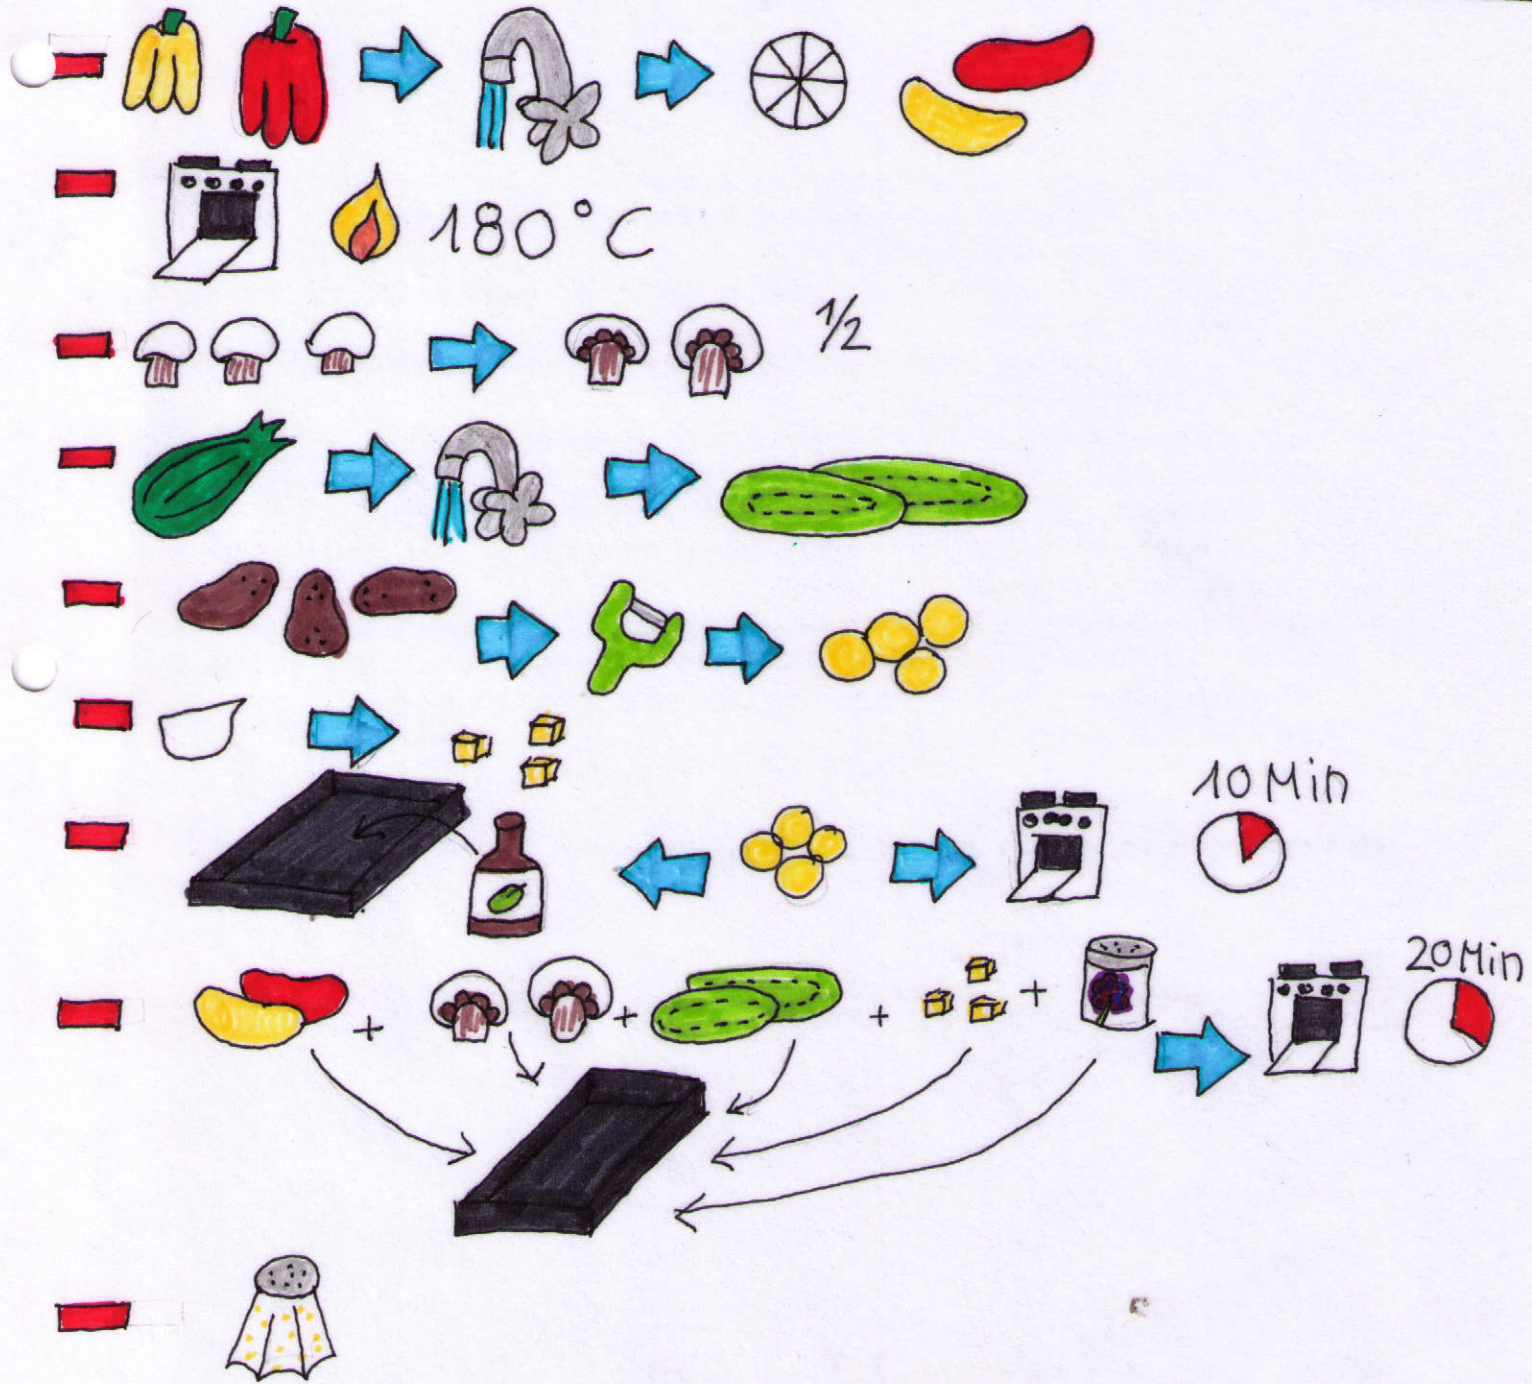 180°C
1/2
10 Min
20 Min